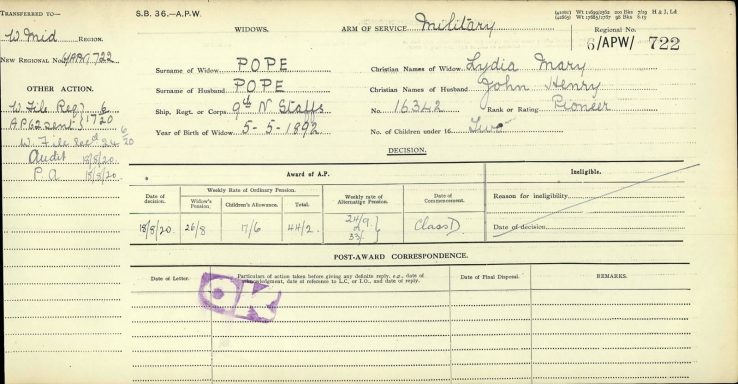 TRANSFERRED TO—
W Mid REGION.
NEW REGIONAL No. 722
OTHER ACTION.
W. File Req 6
AP62 sent 1720
W. File Rec'd 24 6/20
Audit 18/8/20
P A 18/8/20
S.B. 36.—A.P.W.
WIDOWS.
ARM OF SERVICE Military
Regional No.
6/APW/ 722
Surname of Widow POPE
Christian Names of Widow Lydia Mary
Surname of Husband POPE
Christian Names of Husband John Henry
Ship, Regt. or Corps 9th N Staffs
No. 16342 Rank or Rating Pioneer
Year of Birth of Widow 5-5-1892
No. of Children under 16 Two
DECISION.
Award of A.P.
Ineligible.
Date of decision.
Weekly Rate of Ordinary Pension.
Widow's Pension.
Children's Allowance.
Total.
Weekly rate of Alternative Pension.
Date of Commencement.
Reason for ineligibility
18/8/20. 26/8 17/6 44/2. 24/9 33/- Class D.
Date of decision
POST-AWARD CORRESPONDENCE.
Date of Letter.
Particulars of action taken before giving any definite reply, e.g., date of acknowledgment, date of reference to L.C. or I.O., and date of reply.
Date of Final Disposal.
REMARKS.
OK